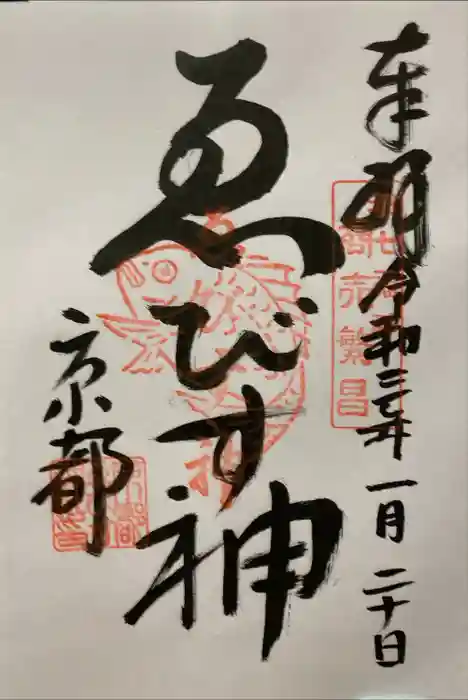 奉拝 令和三年 一月 二十日
商売繁昌
ゑびす神
京都